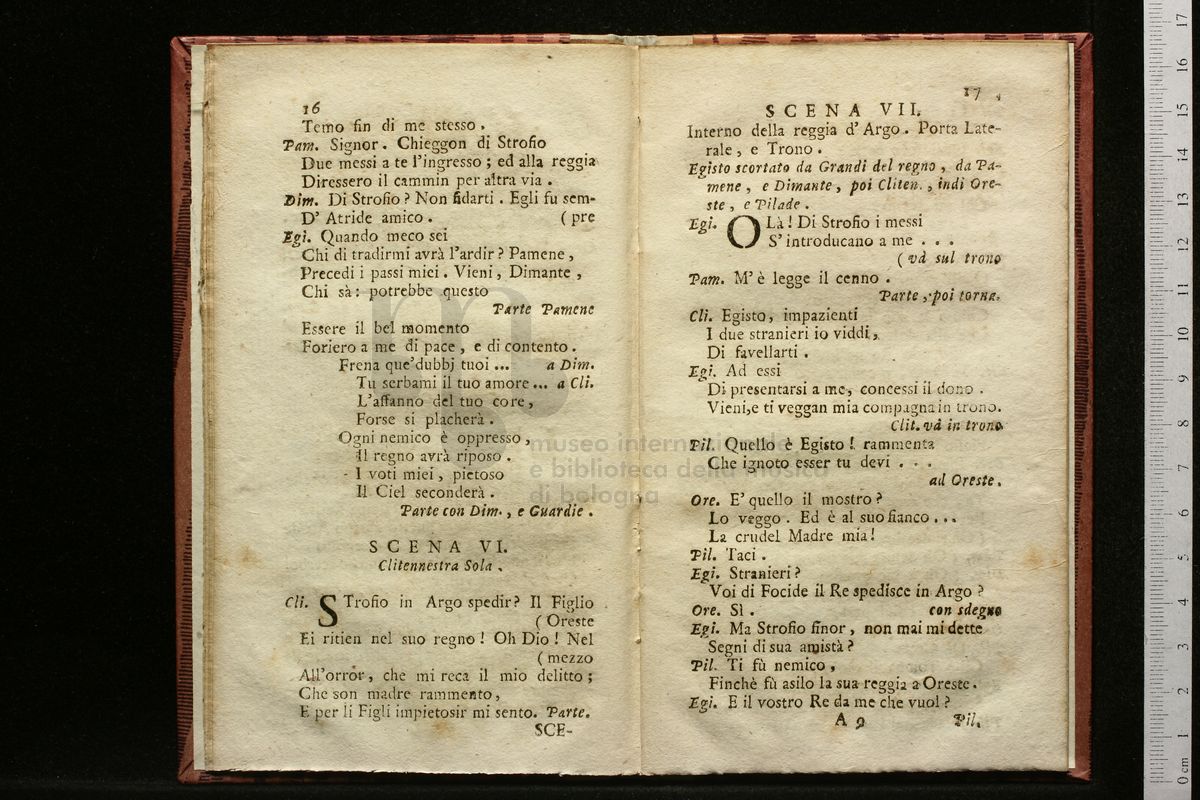 16
Temo fin di me stesso.
Pam. Signor. Chieggon di Strofio
Due messi a te l'ingresso; ed alla reggia
Diressero il cammin per altra via.
Dim. Di Strofio? Non fidarti. Egli fu sem-
D' Atride amico. (pre
Egi. Quando meco sei
Chi di tradirmi avrà l'ardir? Pamene,
Precedi i passi miei. Vieni, Dimante,
Chi sà: potrebbe questo
Parte Pamene
Essere il bel momento
Foriero a me di pace, e di contento.
Frena que'dubbj tuoi ... a Dim.
Tu serbami il tuo amore... a Cli.
L'affanno del tuo core,
Forse si placherà.
Ogni nemico è oppresso,
Il regno avrà riposo.
I voti miei, pietoso
Il Ciel seconderà.
Parte con Dim., e Guardie.
SCENA VI.
Clitennestra Sola.
Cli. STrofio in Argo spedir? Il Figlio
(Oreste
Ei ritien nel suo regno! Oh Dio! Nel
(mezzo
All'orror, che mi reca il mio delitto;
Che son madre rammento,
E per li Figli impietosir mi sento. Parte.
SCE-
17
SCENA VII.
Interno della reggia d'Argo. Porta Late-
rale, e Trono.
Egisto scortato da Grandi del regno, da Pa-
mene, e Dimante, poi Cliten., indi Ore-
ste, e Pilade.
Egi. OLà! Di Strofio i messi
S'introducano a me . . .
(và sul trono
Pam. M'è legge il cenno.
Parte, poi torna.
Cli. Egisto, impazienti
I due stranieri io viddi,
Di favellarti.
Egi. Ad essi
Di presentarsi a me, concessi il dono.
Vieni, e ti veggan mia compagna in trono.
Clit. và in trono
Pil. Quello è Egisto! rammenta
Che ignoto esser tu devi . . .
ad Oreste.
Ore. E' quello il mostro?
Lo veggo. Ed è al suo fianco...
La crudel Madre mia!
Pil. Taci.
Egi. Stranieri?
Voi di Focide il Re spedisce in Argo?
Ore. Sì. con sdegno
Egi. Ma Strofio finor, non mai mi dette
Segni di sua amistà?
Pil. Ti fù nemico,
Finchè fù asilo la sua reggia a Oreste.
Egi. E il vostro Re da me che vuol?
A 9 Pil.
museo internazionale
e biblioteca della musica
di bologna
0 cm 1 2 3 4 5 6 7 8 9 10 11 12 13 14 15 16 17